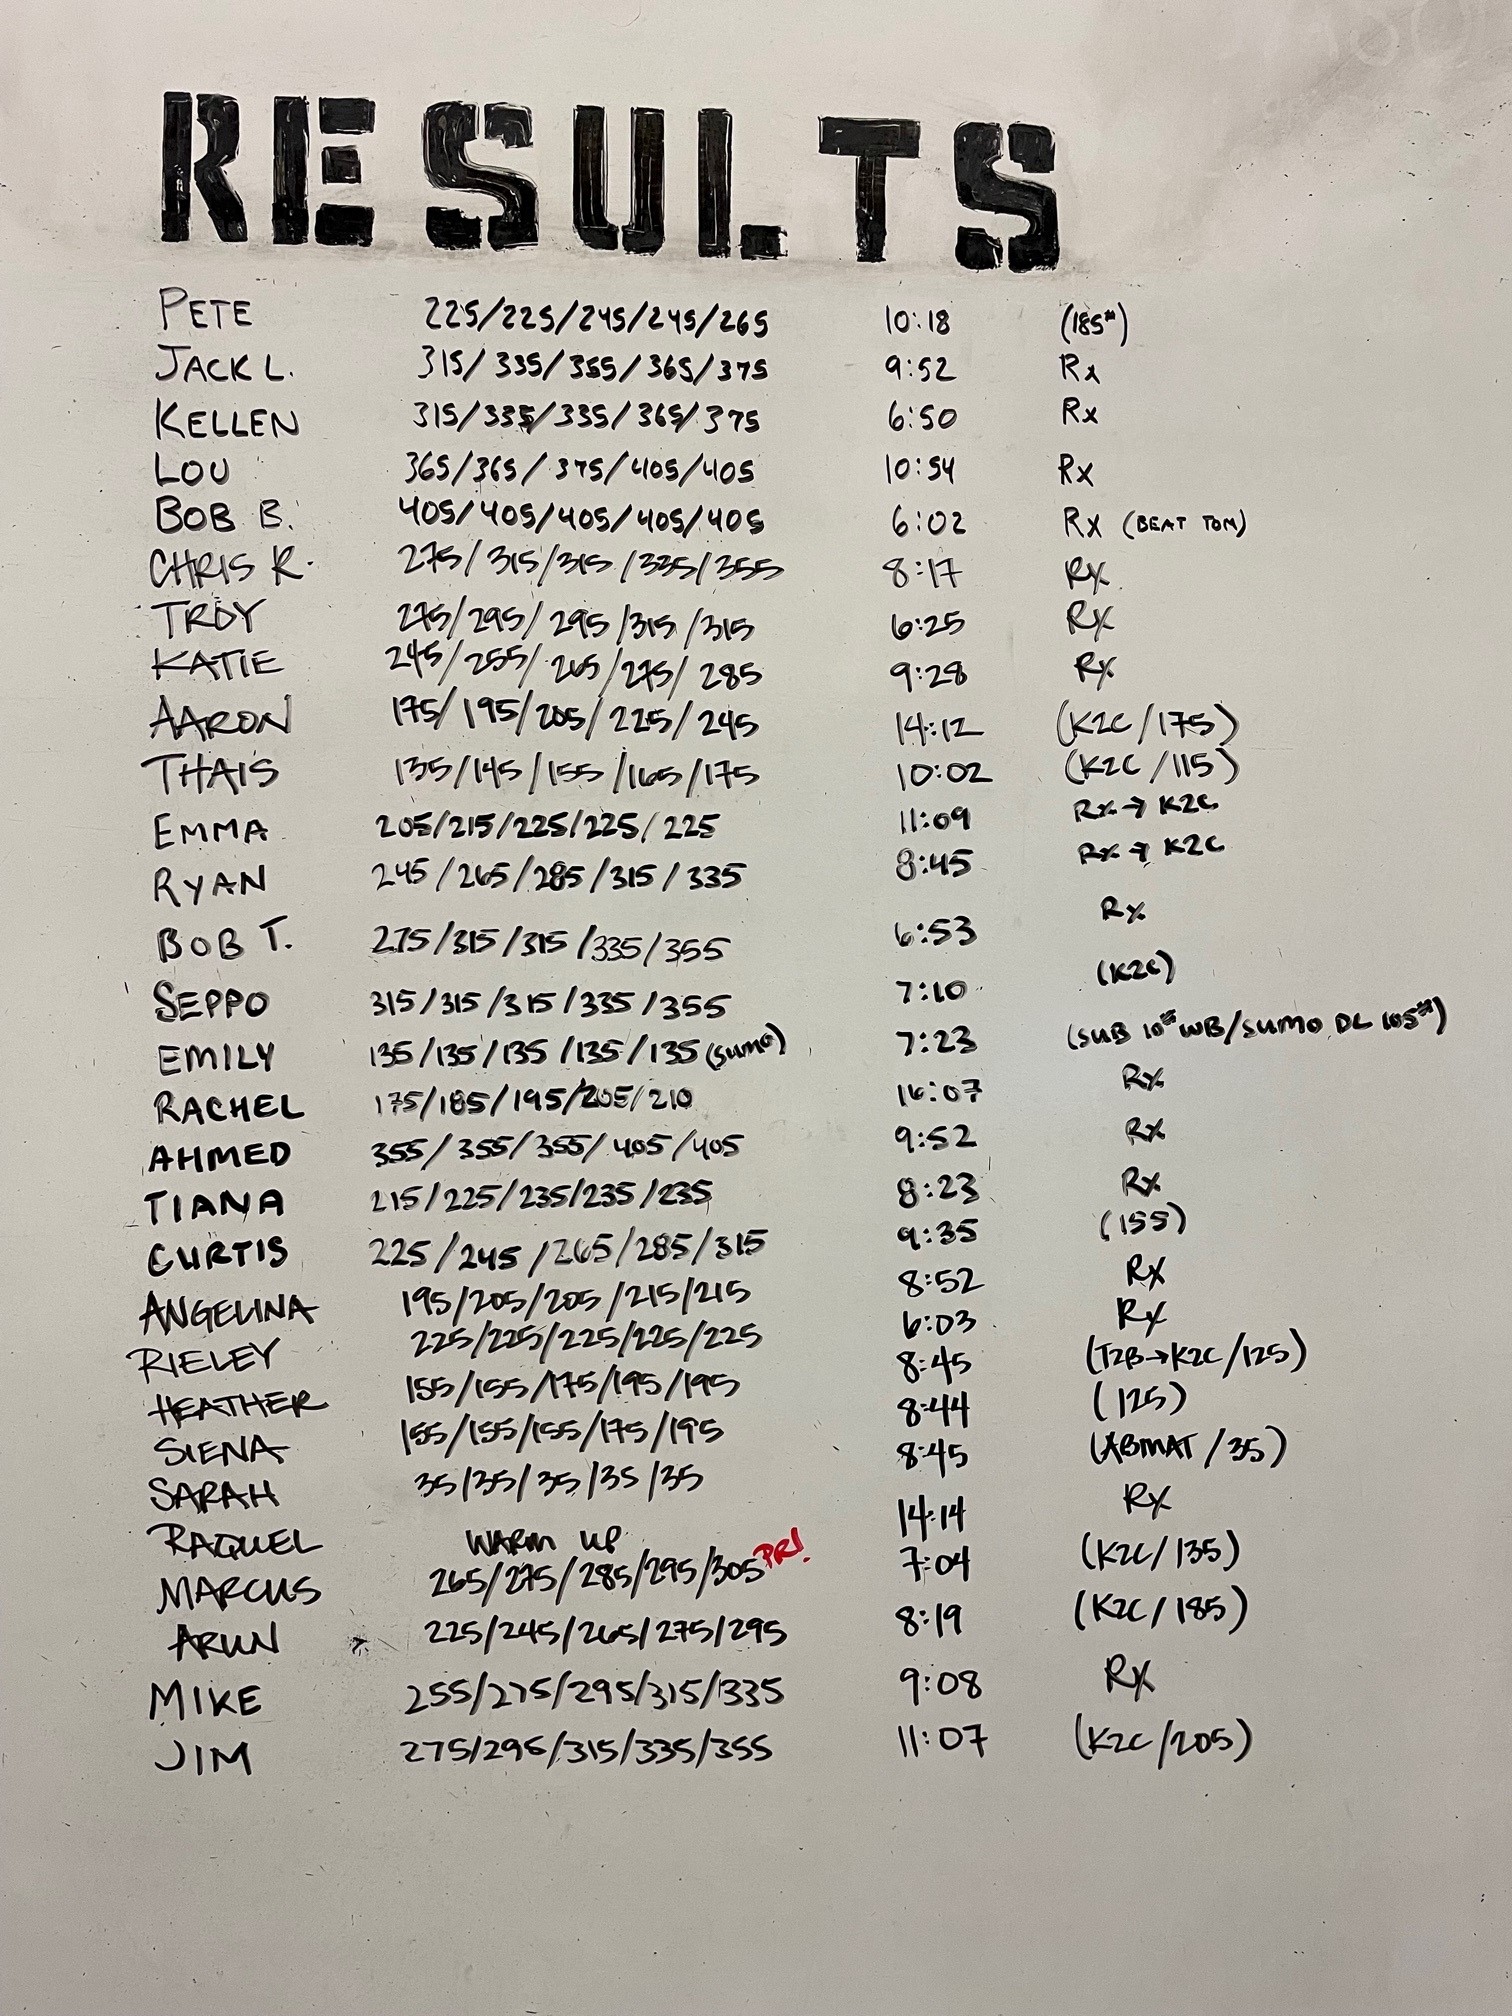 RESULTS
PETE 225/225/245/245/265 10:18 (185#)
JACK L. 315/335/355/365/375 9:52 Rx
KELLEN 315/335/335/365/375 6:50 Rx
LOU 365/365/375/405/405 10:54 Rx
BOB B. 405/405/405/405/405 6:02 Rx (BEAT TOM)
CHRIS R. 275/315/315/335/355 8:17 Rx
TROY 275/295/295/315/315 6:25 Rx
KATIE 245/255/265/275/285 9:28 Rx
AARON 175/195/205/225/245 14:12 (K2C/175)
THAIS 135/145/155/165/175 10:02 (K2C/115)
EMMA 205/215/225/225/225 11:09 Rx→K2C
RYAN 245/265/285/315/335 8:45 Rx→K2C
BOB T. 275/315/315/335/355 6:53 Rx
SEPPO 315/315/315/335/355 7:10 (K2C)
EMILY 135/135/135/135/135 (SUMO) 7:23 (SUB 10# WB/SUMO DL 105#)
RACHEL 175/185/195/205/210 16:07 Rx
AHMED 355/355/355/405/405 9:52 Rx
TIANA 215/225/235/235/235 8:23 Rx
CURTIS 225/245/265/285/315 9:35 (155)
ANGELINA 195/205/205/215/215 8:52 Rx
RIELEY 225/225/225/225/225 6:03 Rx
HEATHER 155/155/175/195/195 8:45 (T2B→K2C/125)
SIENA 155/155/155/175/195 8:44 (125)
SARAH 35/35/35/35/35 8:45 (ABMAT/35)
RAQUEL WARM UP 14:14 Rx
MARCUS 265/275/285/295/305 PR! 7:04 (K2C/135)
ARUN 225/245/265/275/295 8:19 (K2C/185)
MIKE 255/275/295/315/335 9:08 Rx
JIM 275/295/315/335/355 11:07 (K2C/205)